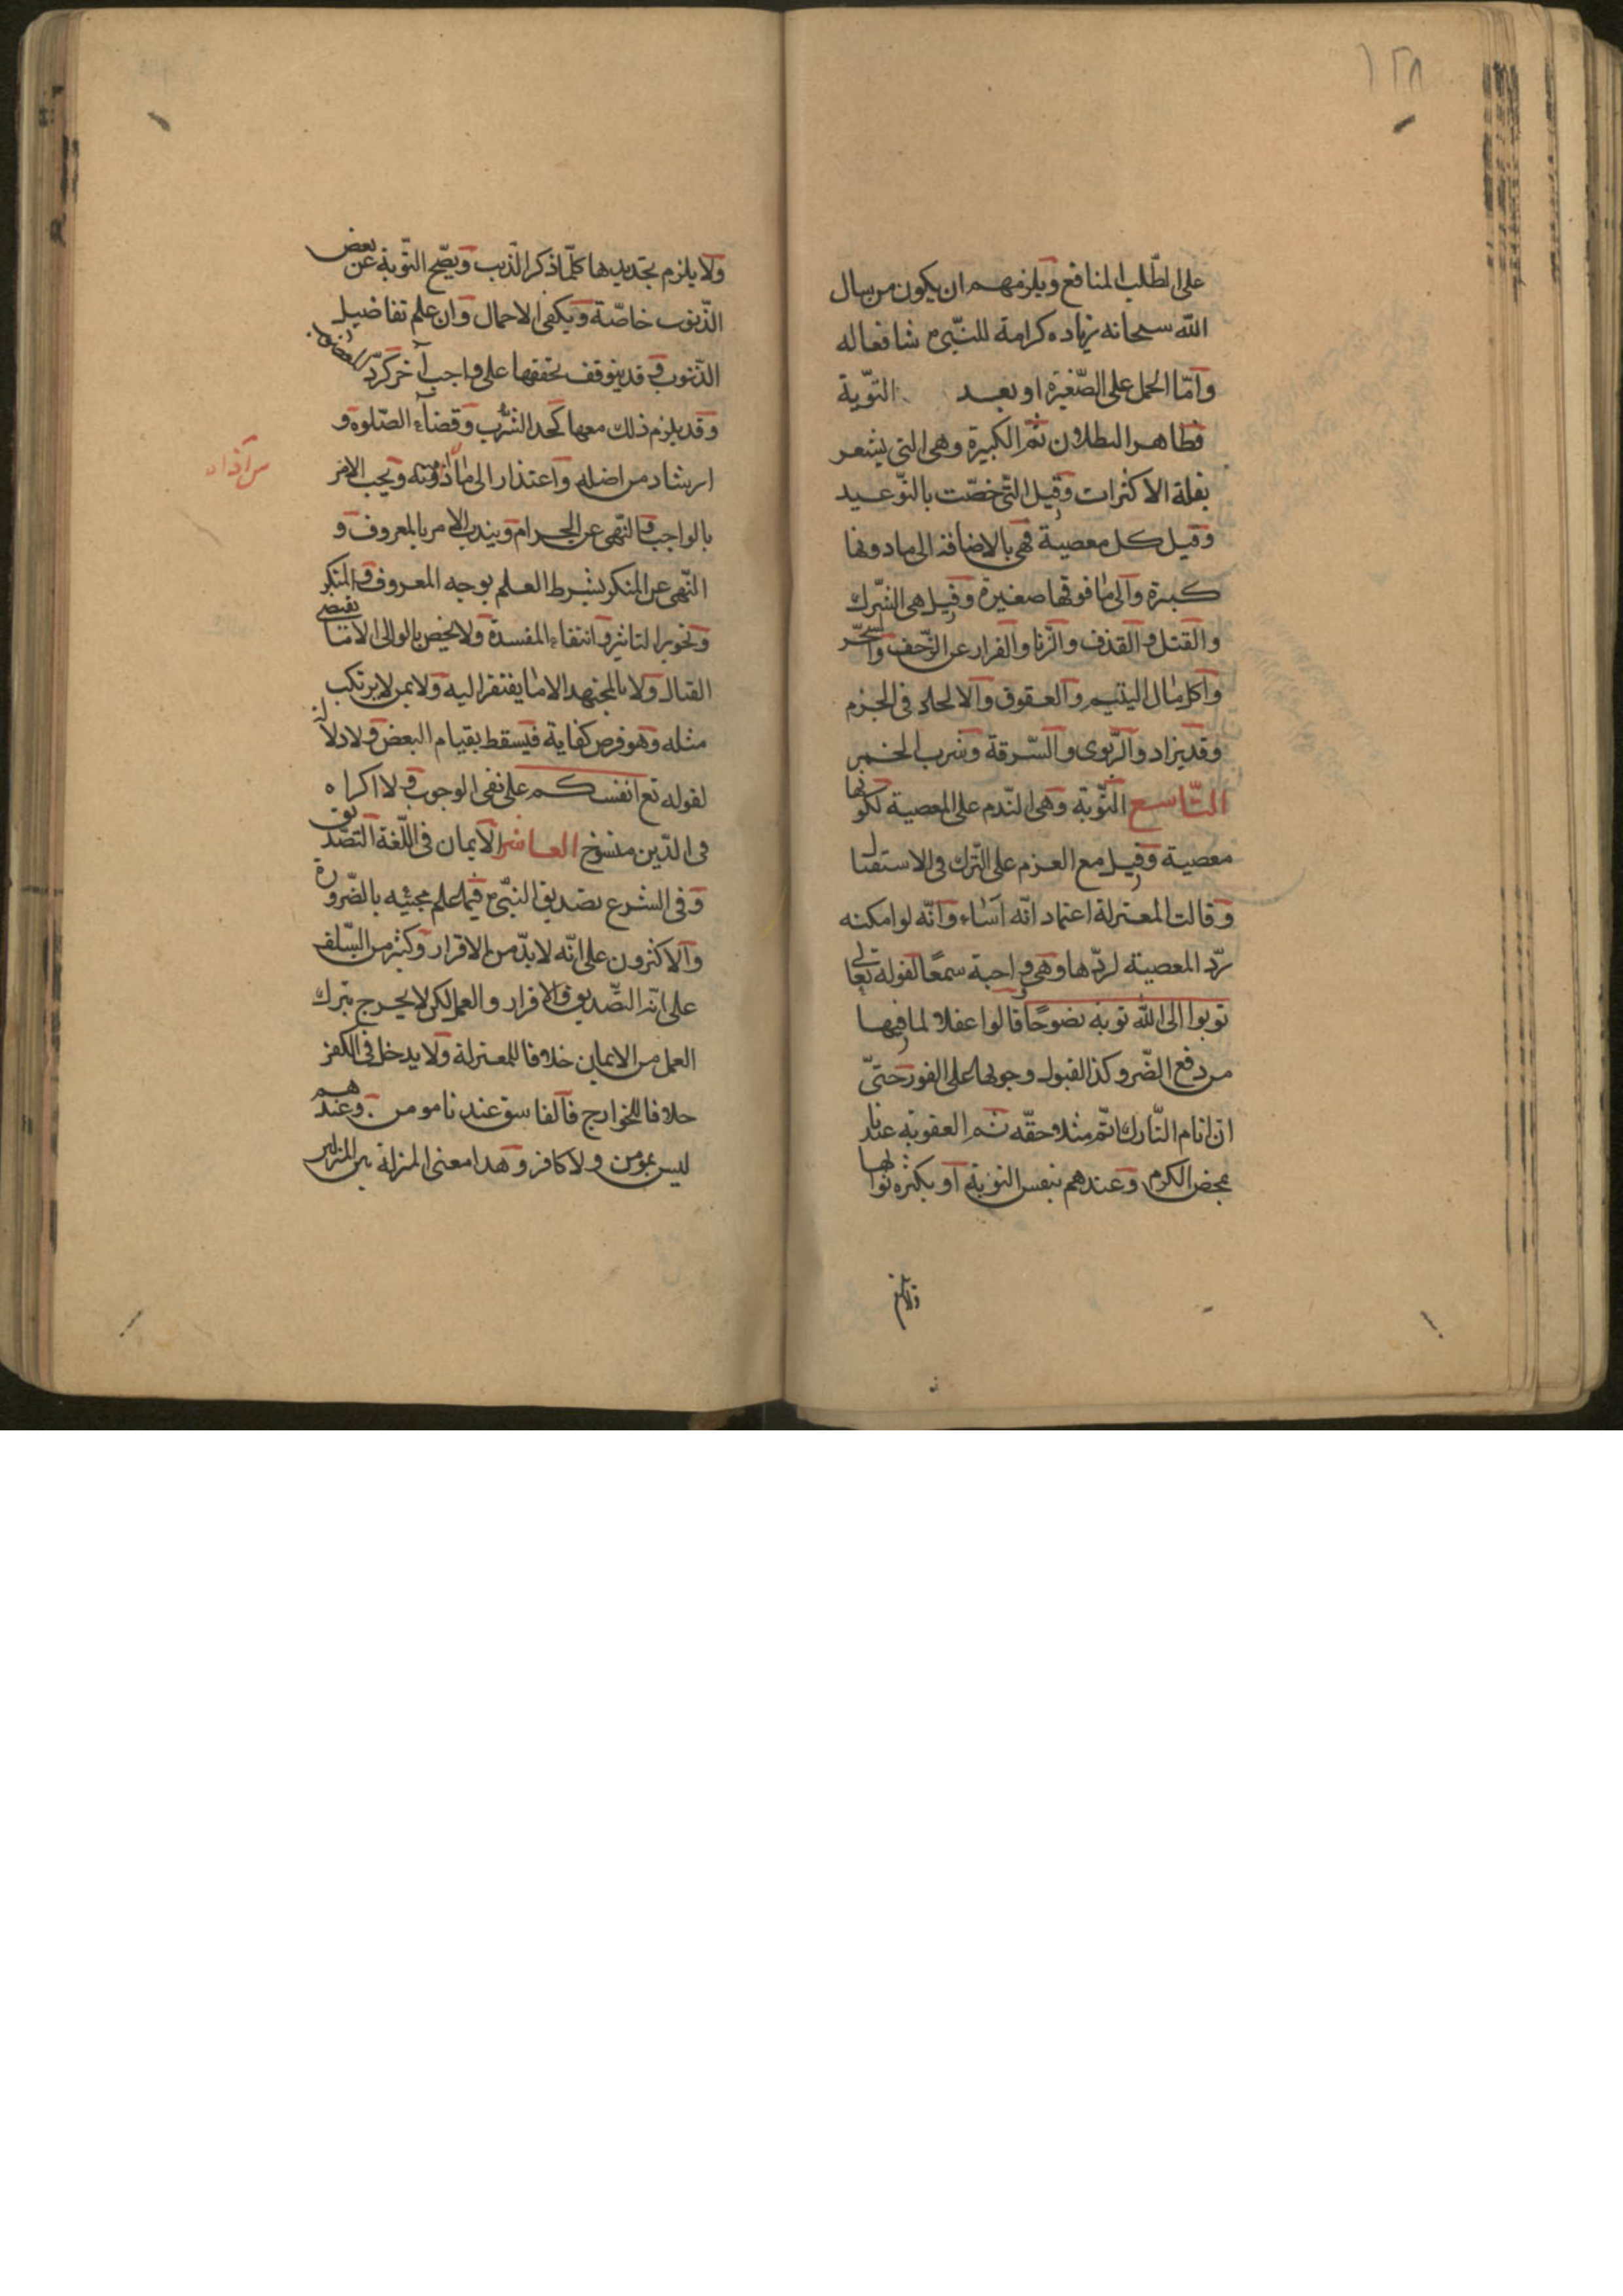 ١٢٨
على الطّلب المنافع ويلزمهم ان يكون من سال
الله سبحانه زياده كرامة للنّبىّ شافعا له
وامّا الحمل على الصّغيرة او بعد التوّبة
فظاهر البطلان ثم الكبيرة وهى التى يشعر
بقلة الاكثرات وقيل التى خصّت بالتوّعيد
وقيل كل معصية فهى بالاضافة الى مادونها
كبيرة والى مافوقها صغيرة وقيل هى الشّرك
والقتل والقذف والزّنا والفرار عن الزّحف والسّحر
واكل مال اليتيم والعقوق والالحاد فى الحرم
وقد يزاد والرّبوى والسّرقة وشرب الخمر
التّاسع التّوبة وهى النّدم على المعصية لكونها
معصية وقيل مع العزم على التّرك فى الاستقبال
وقالت المعتزلة اعتماد انّه اساء وانّه لو امكنه
ردّ المعصية لردّها وهى واجبة سمعًا لقوله تعالى
توبوا الى الله توبة نصوحًا قالوا عقلا لما فيها
من دفع الضّرر وكذا القبول وجوبها على الفور حتىّ
ان اثام التّارك اثم مثلا وحقّه ثم العقوبة عندنا
بمحض الكرم وعندهم بنفس التوبة او بكثرة ثوابها
ولايلزم
ولا يلزم تجديدها كلّما ذكر الذّنب ويصّح التّوبة عن بعض
الذّنوب خاصّة ويكفى الاجمال وان علم تفاضيل
الذّنوب وقد يتوقف تحققها على واجب آخر كردّ المغضوب
وقد يلزم ذلك معها كحد الشّرب وقضاء الصّلوة و
ارشاد من اضله واعتذار الى ما اذويته ويجب الامر
من آذاه
بالواجب والنّهى عن الحرام ويندب الامر بالمعروف و
النّهى عن المنكر بشرط العلم بوجه المعروف والمنكر
وتجويز التاثير وانتفاء المفسدة ولا يخص بالوالى الا ما يفضى
القتال ولا بالمجتهد الا ما يفتقر اليه ولا بمن لا يرتكب
مثله وهو فرض كفاية فيسقط بقيام البعض ولا دلالة
لقوله تع انفسكم على نفى الوجوب ولا اكراه
فى الدّين منسوخ العاشر الايمان فى اللّغة التصّديق
وفى الشرع تصديق النبّى فيما علم مجيئه بالضّرورة
والاكثرون على انّه لا بدّ من الاقرار وكثير من السّلف
على انّه التصّديق والاقرار والعمل لكن لا يخرج بترك
العمل من الايمان خلافا للمعتزلة ولا يدخل فى الكفر
خلافا للخوارج فالفاسق عندنا مومن وعندهم
ليس بمومن ولا كافر وهذا معنى المنزلة بين المنزلتين